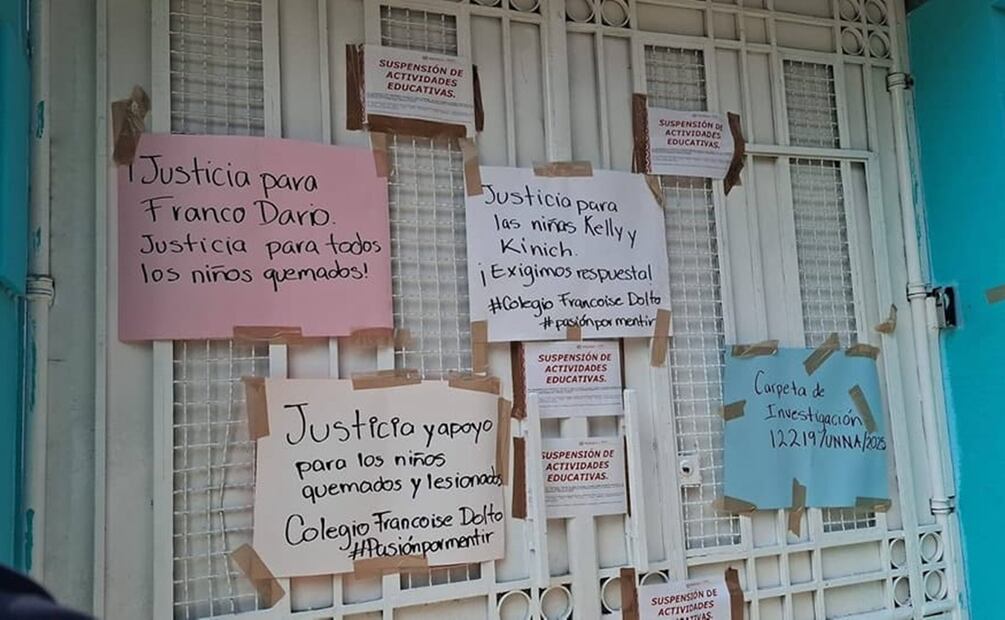 SUSPENSIÓN DE
ACTIVIDADES
EDUCATIVAS.
SUSPENSIÓN DE
ACTIVIDADES
EDUCATIVAS.
¡Justicia para
Franco Dario.
Justicia para todos
los niños quemados!
Justicia para
las niñas Kelly y
Kinich.
¡Exigimos respuesta!
#Colegio Francoise Dolto
#pasiónpormentir
SUSPENSIÓN DE
ACTIVIDADES
EDUCATIVAS.
Carpeta de
Investigación
12219/UNNA/2025
Justicia y apoyo
para los niños
quemados y lesionados
Colegio Francoise Dolto
#Pasiónpormentir
SUSPENSIÓN DE
ACTIVIDADES
EDUCATIVAS.
SUSPENSIÓN DE
ACTIVIDADES
EDUCATIVAS.